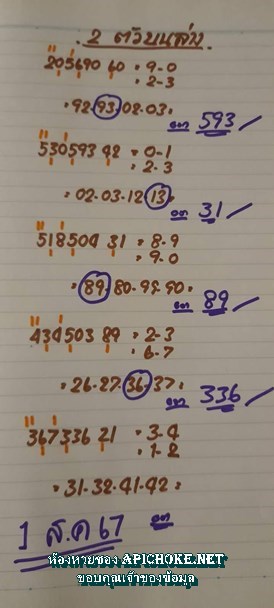 2 ตัวบนล่าง
205690 40 = 9-0
= 2-3
= 92.93.02.03.
ออก 593
530593 42 = 0-1
= 2-3
= 02-03-12.13.
ออก 31
518504 31 = 8-9
= 9-0
= 89.80-99-90.
ออก 89
434503 89 = 2-3
= 6-7
= 26-27.36.37.
ออก 336
367336 21 = 3-4
= 1-2
= 31-32-41-42 =
1 ส.ค 67 ออก
ห้องหวยซอง APICHOKE.NET
ขอบคุณเจ้าของข้อมูล